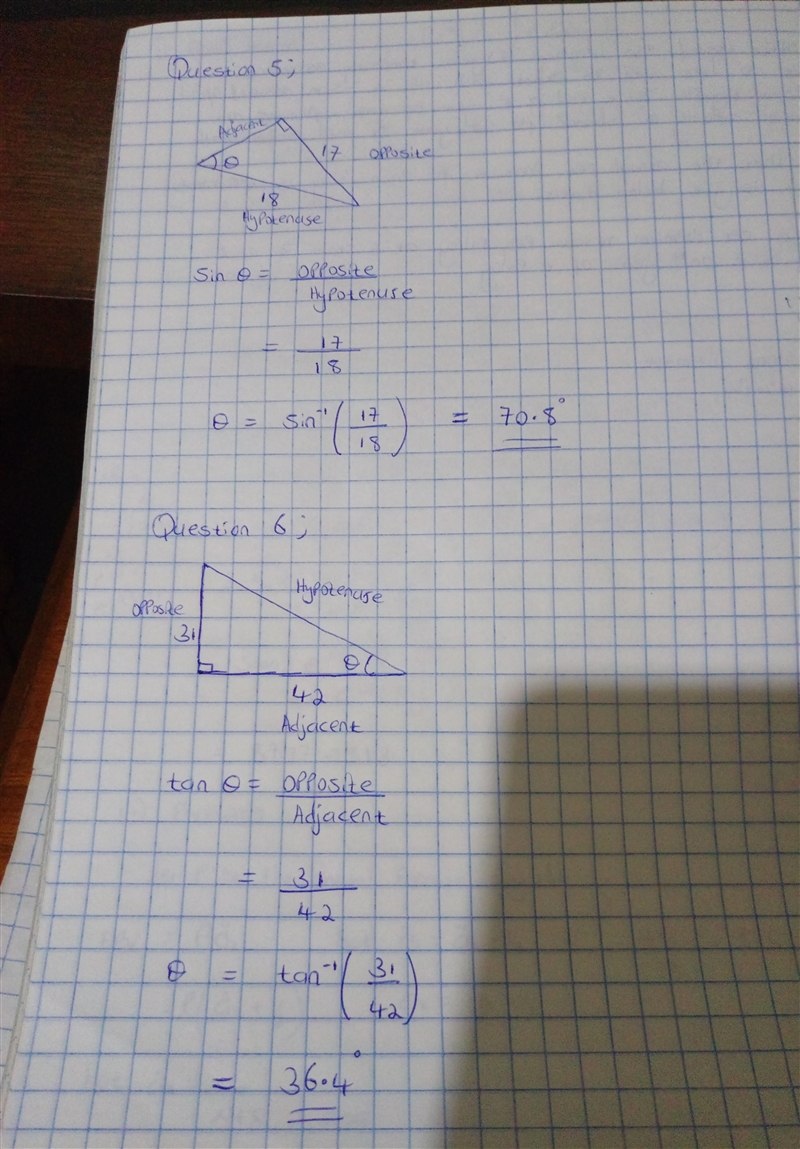 Question 5;
Adjacent
θ
17 Opposite
18
Hypotenuse
Sin θ = Opposite
Hypotenuse
= 17
18
θ = Sin⁻¹(17/18) = 70.8°
Question 6;
Hypotenuse
Opposite
31
θ
42
Adjacent
tan θ = Opposite
Adjacent
= 31
42
θ = tan⁻¹(31/42)
= 36.4°